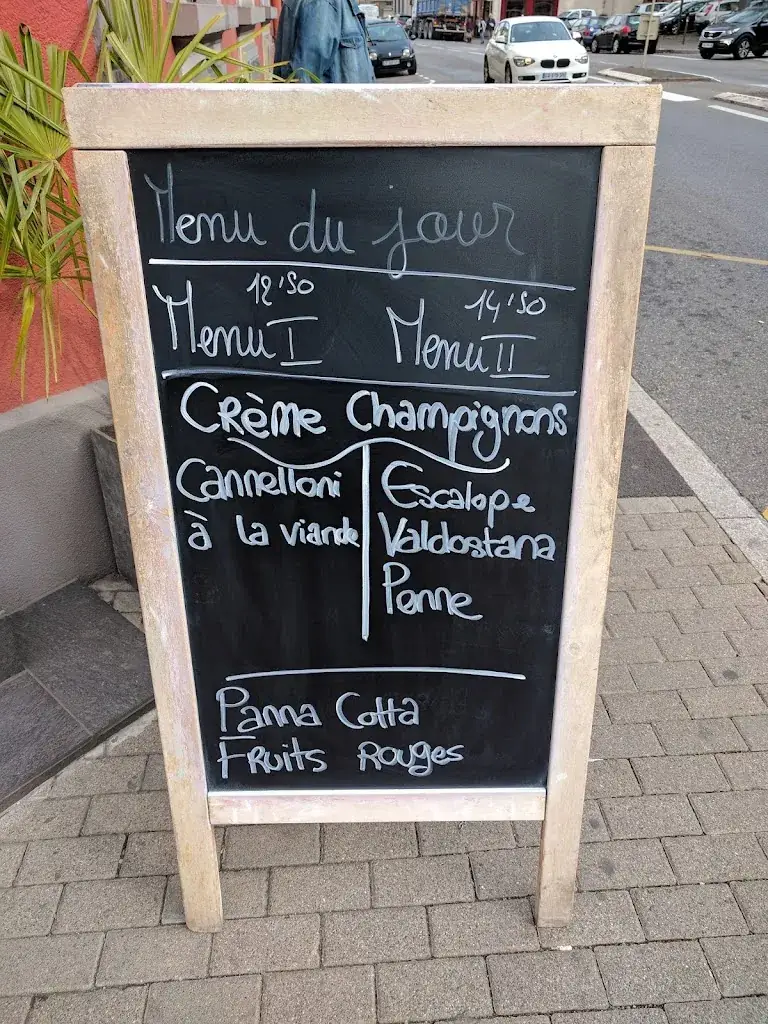 Menu du jour
12'50 14'50
Menu I Menu II
Crème Champignons
Cannelloni
à la viande
Escalope
Valdostana
Penne
Panna Cotta
Fruits Rouges